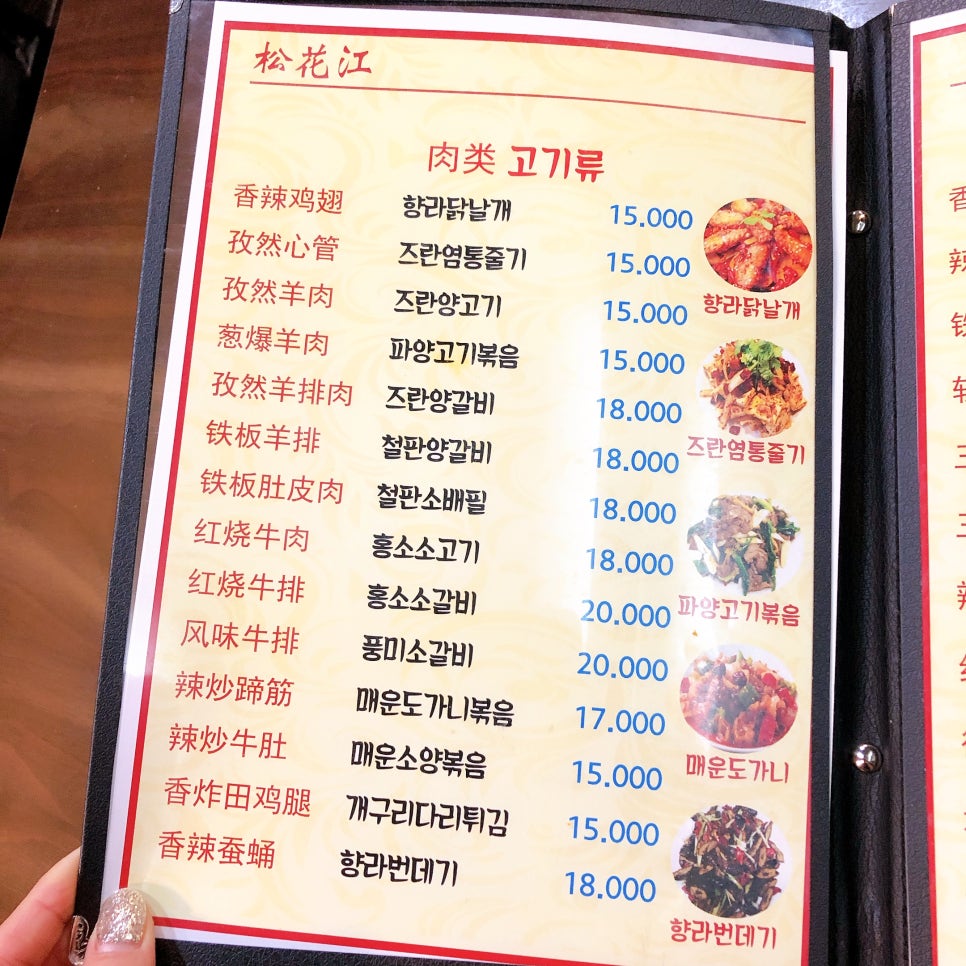 松花江
肉类 고기류
香辣鸡翅 향라닭날개 15.000
孜然心管 즈란염통줄기 15.000
孜然羊肉 즈란양고기 15.000
葱爆羊肉 파양고기볶음 15.000
孜然羊排肉 즈란양갈비 18.000
铁板羊排 철판양갈비 18.000
铁板肚皮肉 철판소배필 18.000
红烧牛肉 홍소소고기 18.000
红烧牛排 홍소소갈비 20.000
风味牛排 풍미소갈비 20.000
辣炒蹄筋 매운도가니볶음 17.000
辣炒牛肚 매운소양볶음 15.000
香炸田鸡腿 개구리다리튀김 15.000
香辣蚕蛹 향라번데기 18.000
향라닭날개
즈란염통줄기
파양고기볶음
매운도가니
향라번데기